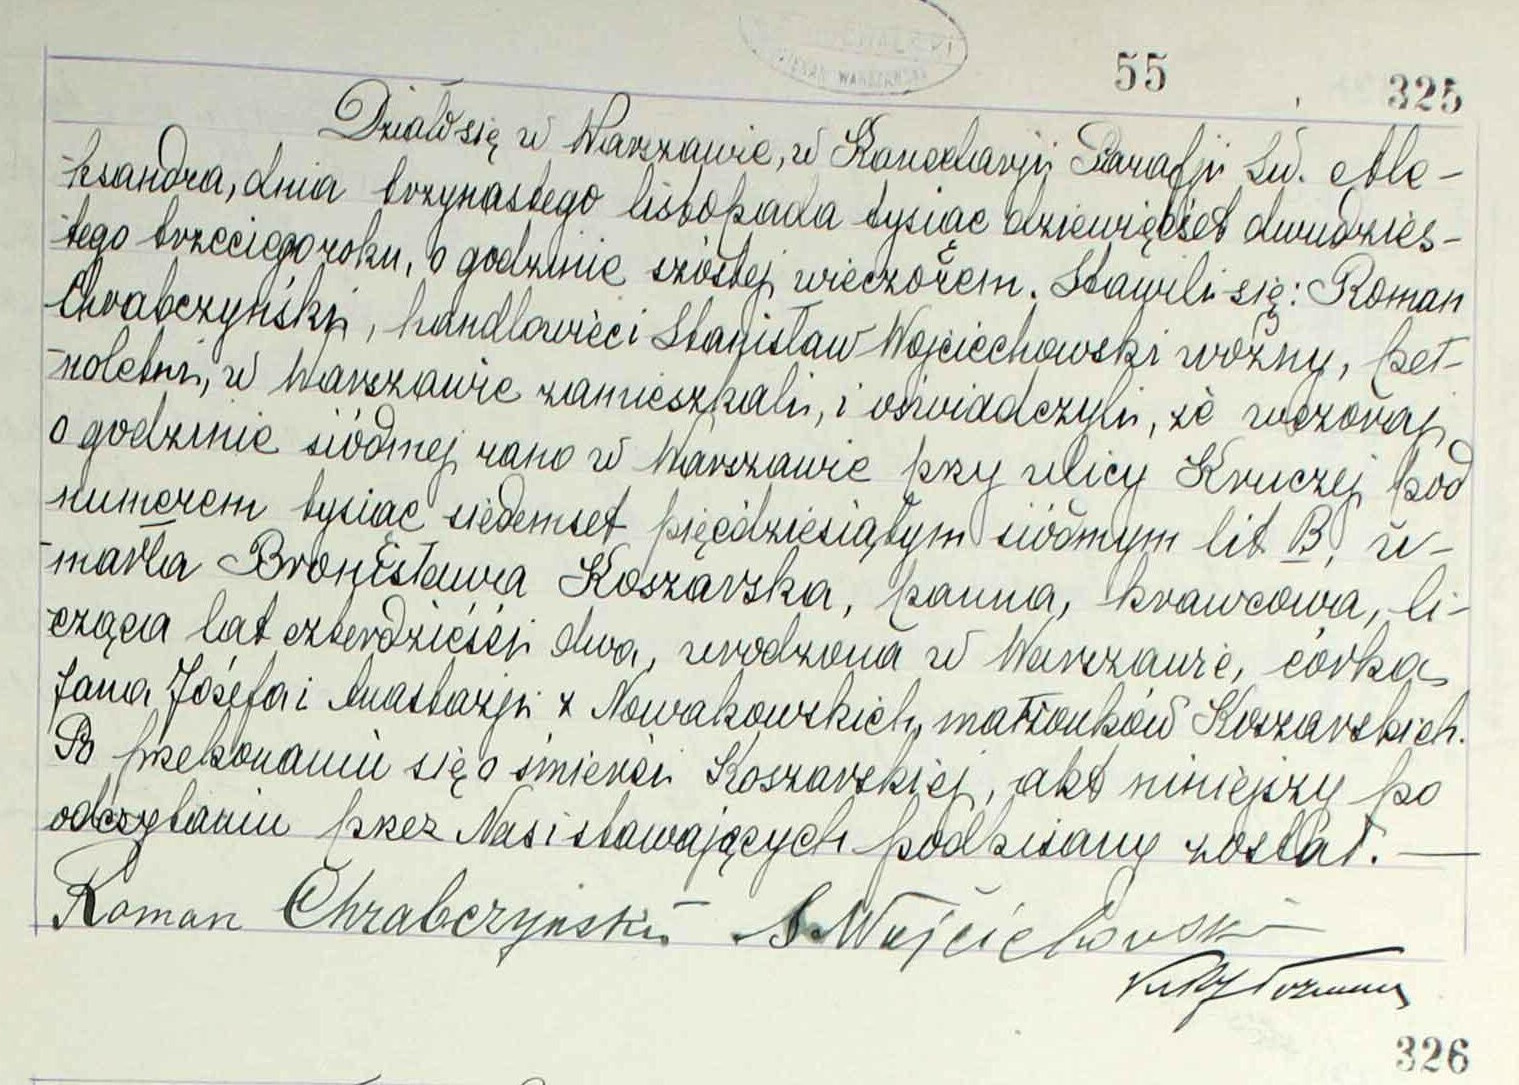 55 325
Działo się w Warszawie, w Kancelarji Parafji Św. Ale-
ksandra, dnia trzynastego listopada tysiąc dziewięćset dwudzies-
tego trzeciego roku, o godzinie szóstej wieczorem. Stawili się: Roman
Chrabczyński, handlowiec i Stanisław Wojciechowski woźny, peł-
noletni, w Warszawie zamieszkali, i oświadczyli, że wczoraj
o godzinie siódmej rano w Warszawie przy ulicy Kruczej pod
numerem tysiąc siedemset pięćdziesiątym siódmym lit B, u-
marła Bronisława Koszarska, panna, krawcowa, li-
cząca lat czterdzieści dwa, urodzona w Warszawie, córka
Jana Józefa i Anastazji z Nowakowskich, małżonków Koszarskich.
Po przekonaniu się o śmierci Koszarskiej, akt niniejszy po
odczytaniu przez Nas i stawających podpisany został. —
Roman Chrabczyński S. Wojciechowski
326